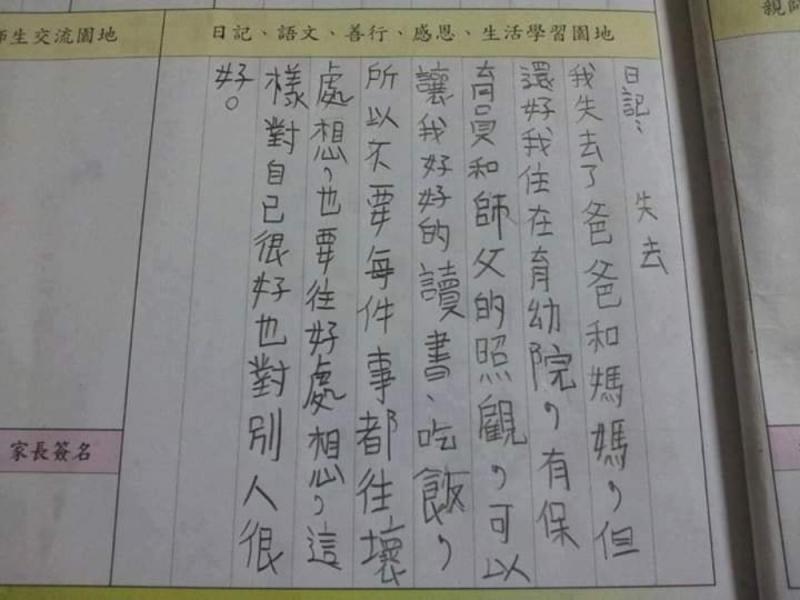 師生交流園地
日記、語文、善行、感恩、生活學習園地
親師
日記:失去
我失去了爸爸和媽媽,但
還好我住在育幼院,有保
育員和師父的照顧,可以
讓我好好的讀書、吃飯,
所以不要每件事都往壞
處想,也要往好處想,這
樣對自己很好也對別人很
好。
家長簽名